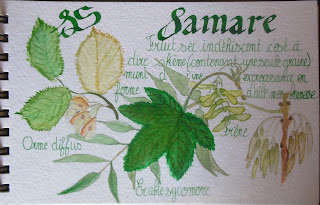 S Samare
Fruit sec indéhiscent c'est à
dire akène (contenant une seule graine)
muni d'une excroissance en
forme d'aile membraneuse
Orme diffus
Frêne
Erable sycomore